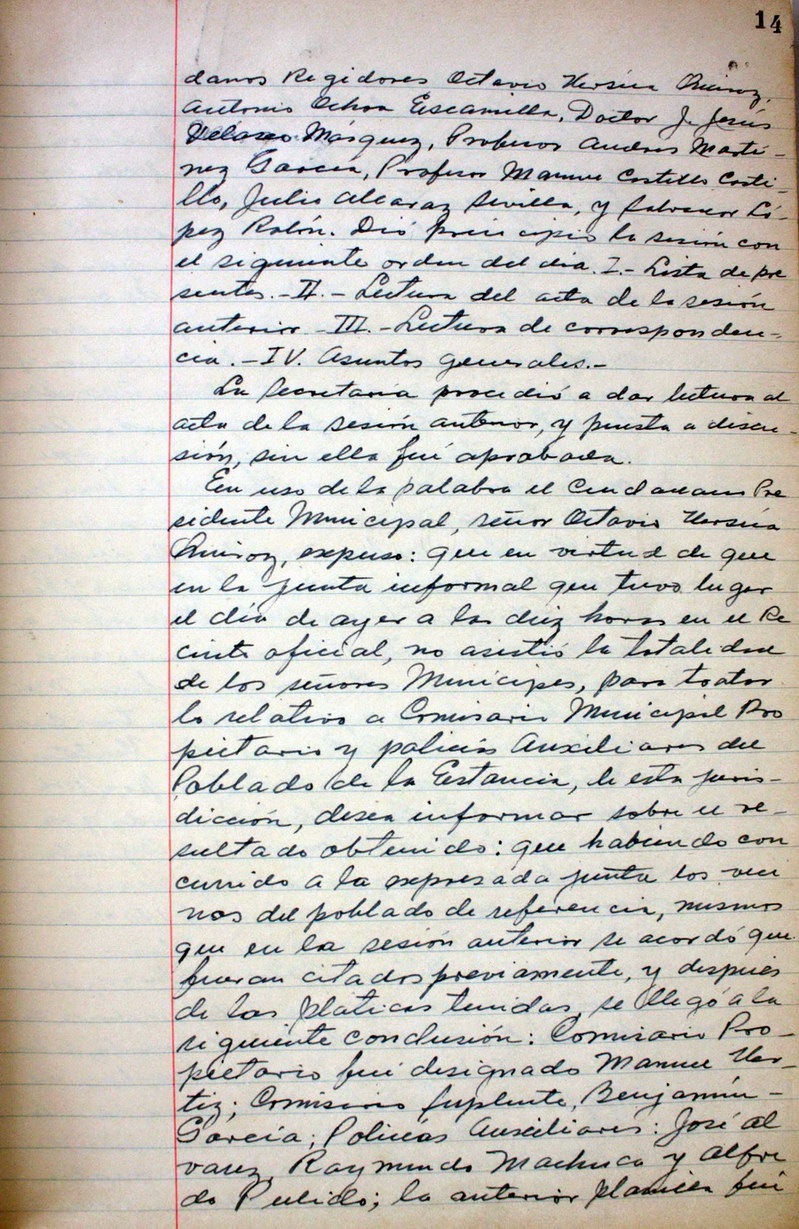 14
danos Regidores Octavio Versía Quiroz,
Antonio Ochoa Escamilla, Doctor J. Jesús
Velasco Másquez, Profesor Andrés Martí-
nez García, Profesor Manuel Castillo Casti-
llo, Julio Alcaraz Sevilla, y Salvador Ló-
pez Rolón. Dió principio la sesión con
el siguiente orden del dia. I.- Lista de pre
sentes.-II.- Lectura del acta de la sesión
anterior.-III.-Lectura de corresponden-
cia.-IV. Asuntos generales.-
La Secretaría procedió a dar lectura al
acta de la sesión anterior, y puesta a discu-
sión, sin ella fué aprobada.
En uso de la palabra el Ciudadano Pre
sidente Municipal, señor Octavio Versía
Quiroz, expuso: que en virtud de que
en la junta informal que tuvo lugar
el día de ayer a las diez horas en el Re
cinto oficial, no asistió la totalidad
de los señores Munícipes, para tratar
lo relativo a Comisario Municipal Pro
pietario y policías Auxiliares del
Poblado de la Estancia, de esta juris-
dicción, desea informar sobre el re-
sultado obtenido: que habiendo con
currido a la expresada junta los veci
nos del poblado de referencia, mismos
que en la sesión anterior se acordó que
fueran citados previamente, y después
de las platicas tenidas, se llegó a la
siguiente conclusión: Comisario Pro-
pietario fué designado Manuel Ver-
tiz; Comisario Suplente, Benjamín-
García; Policías Auxiliares: José Al
varez, Raymundo Machuca y Alfre
do Pulido; la anterior planilla fué